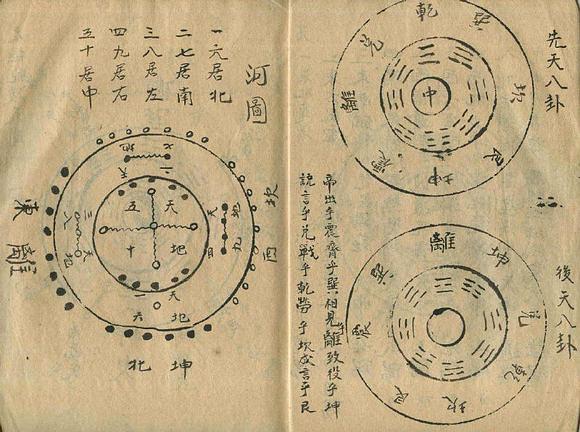 先天八卦
乾
巽
坎
艮
坤
震
離
兌
中
後天八卦
離
坤
兌
乾
坎
艮
震
巽
帝出乎震齊乎巽相見乎離致役乎坤
說言乎兌戰乎乾勞乎坎成言乎艮
河圖
一六居北
二七居南
三八居左
四九居右
五十居中
坎
西
東
離
北 坤
天 五
地 十
天一
地六